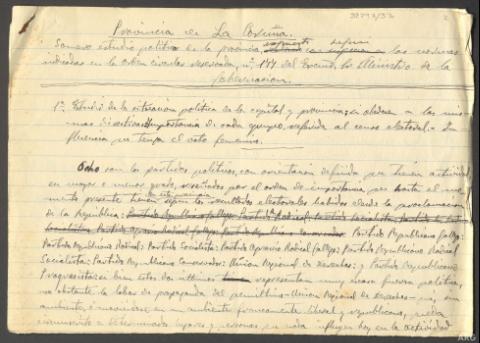 Provincia de La Coruña.
Somero estudio politico de la provincia, según las normas
indicadas en la orden circular reservada, nº 177 del Excmo. Sr. Ministro de la
Gobernacion.
1º Estudio de la situacion politica en la capital y provincia; si obedece a las mis-
mas directivas. Importancia de cada grupo, referida al censo electoral. In-
fluencia que tenga el voto femenino.
Ocho son los partidos politicos, con orientacion definida que tienen actividad,
en mayor o menor grado, reseñados por el orden de importancia que hasta el mo-
mento presente tienen según los resultados electorales habidos desde la proclamacion
de la Republica: Partido Republicano Gallego;
Partido Republicano Radical; Partido Socialista; Partido Agrario Radical Gallego; Partido Republicano Radical
Socialista; Partido Republicano Conservador; Union Regional de Derechas; y Partido Republicano
Progresista; si bien estos dos ultimos representan muy escasa fuerza politica,
no obstante la labor de propaganda del penultimo - Union Regional de Derechas - que, en su
ambiente, é inmovible en un ambiente francamente liberal y republicano, queda
circunscrito a determinados lugares y personas, en nada influyen hoy en la actividad
ARG